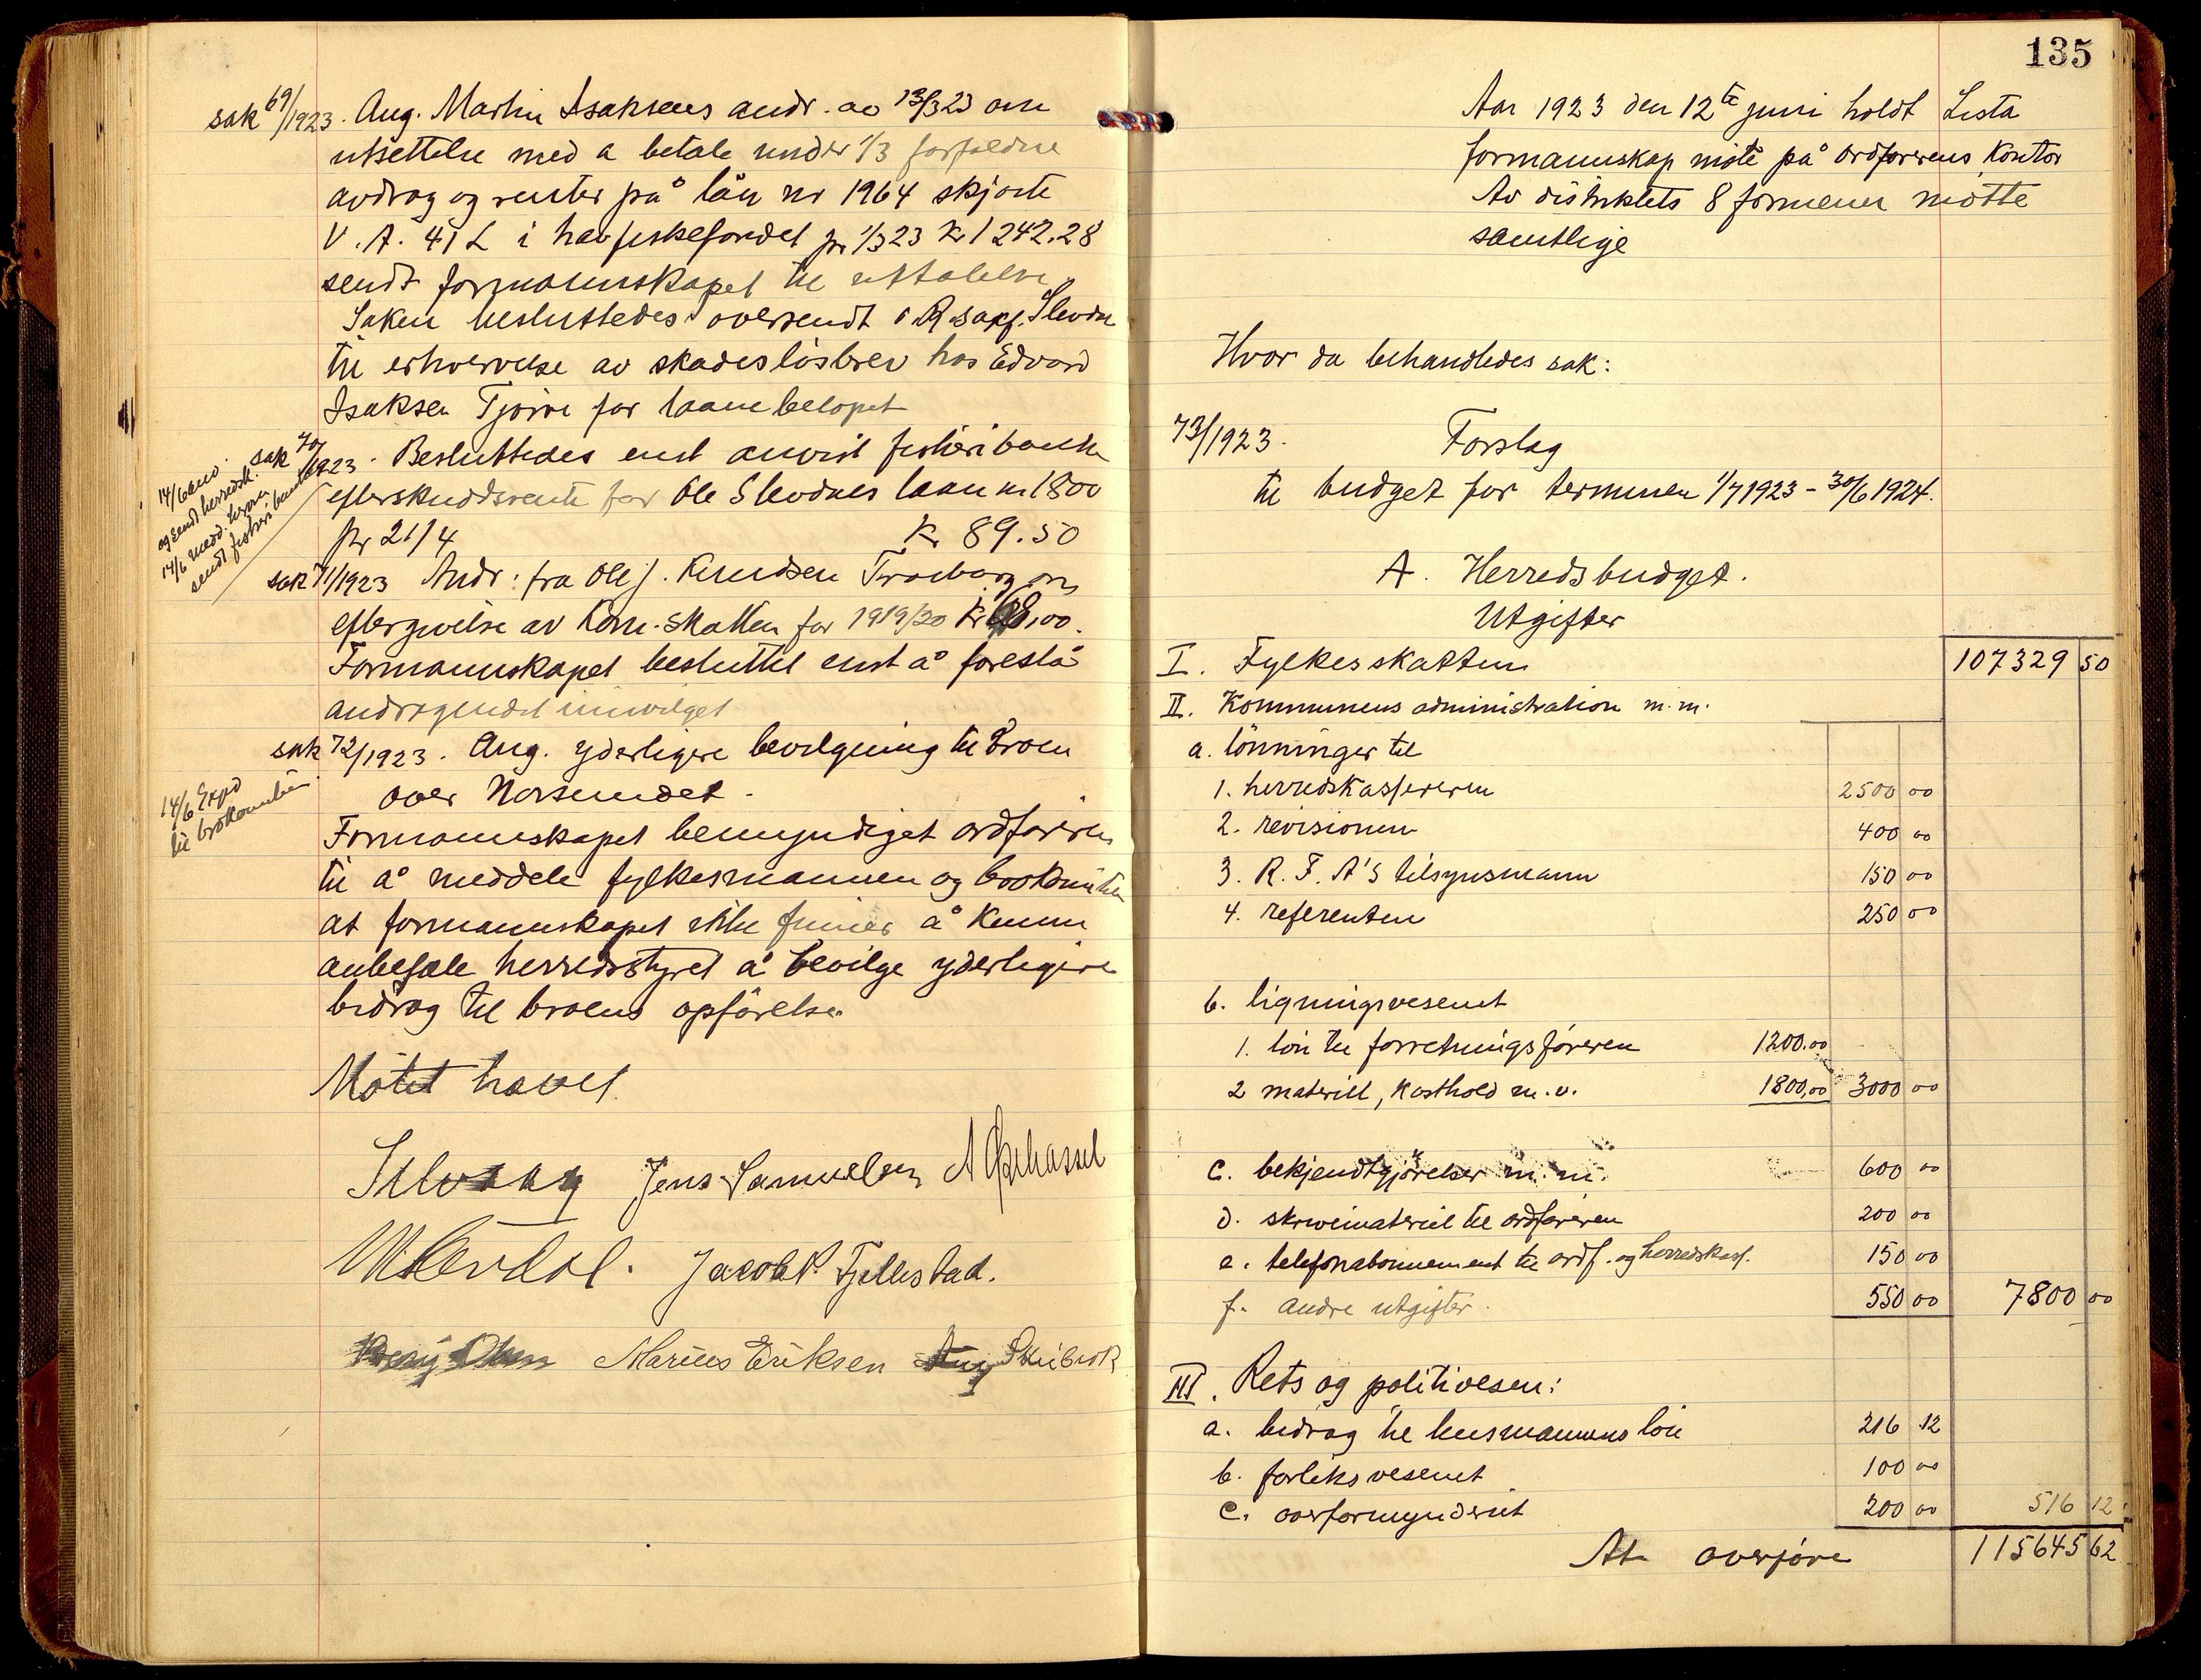 sak 69/1923. Ang. Martin Isaksens andr. av 13/3 23 om
utsettelse med a betale under 1/3 forfaldne
avdrag og renter på lån nr 1964 skjøite
V. A. 41 L i havfiskefondet pr 1/3 23 Kr 1242.28
sendt formannskapet til uttalelse
Saken besluttedes oversendt
til erhvervelse av skadesløsbrev hos Edvard
Isaksen Tjørve for laanebeløpet
sak 70/1923. Besluttedes enst anvist fiskeribanken
efterskuddsrente for Ole Slevdnes laan kr 1800
pr 21/4 Kr 89.50
14/6 anv.
og sendt herredsk.
14/6 medd.
sendt fiskeribanken
sak 71/1923 Andr: fra Ole J. Knudsen om
eftergivelse av Kom. skatten for 1919/20 Kr 68,00.
Formannskapet besluttet enst å foreslå
andragendet innvilget
sak 72/1923. Ang. yderligere bevilgning til Broen
over Norsundet.
14/6 Expd
til brokomiteen
Formannskapet bemyndiget ordføreren
til å meddele fylkesmannen og brokomiteen
at formannskapet ikke finner å kunne
anbefale herredsstyret å bevilge yderligere
bidrag til broens opførelse.
Møtet hævet.
Jens Samuelsen
Jacob P. Fjellestad.
Olsen Marius Eriksen Aug Skeibrok
135
Aar 1923 den 12te juni holdt Lista
formannskap møte på ordførerens kontor
Av distriktets 8 formenn møtte
samtlige
Hvor da behandledes sak:
73/1923. Forslag
til budget for terminen 1/7 1923 - 30/6 1924.
A. Herredsbudget.
Utgifter
I. Fylkesskatten 107329 50
II. Kommunens administration m.m.
a. lønninger til
1. herredskassereren 2500 00
2. revisionen 400 00
3. R. F. A's tilsynsmann 150 00
4. referenten 250 00
b. ligningsvesenet
1. løn til forretningsføreren 1200.00
2 materiell, kosthold m.v. 1800,00 3000 00
c. bekjendtgjørelser m.m. 600 00
d. skrivemateriel til ordføreren 200 00
e. telefonabonnement til ordf. og herredskass. 150 00
f. andre utgifter. 550 00 7800 00
III. Rets og politivesen:
a. bidrag til lensmannens løn 216 12
b. forliksvesenet 100 00
c. overformynderiet 200 00 516 12
At overføre 115645 62